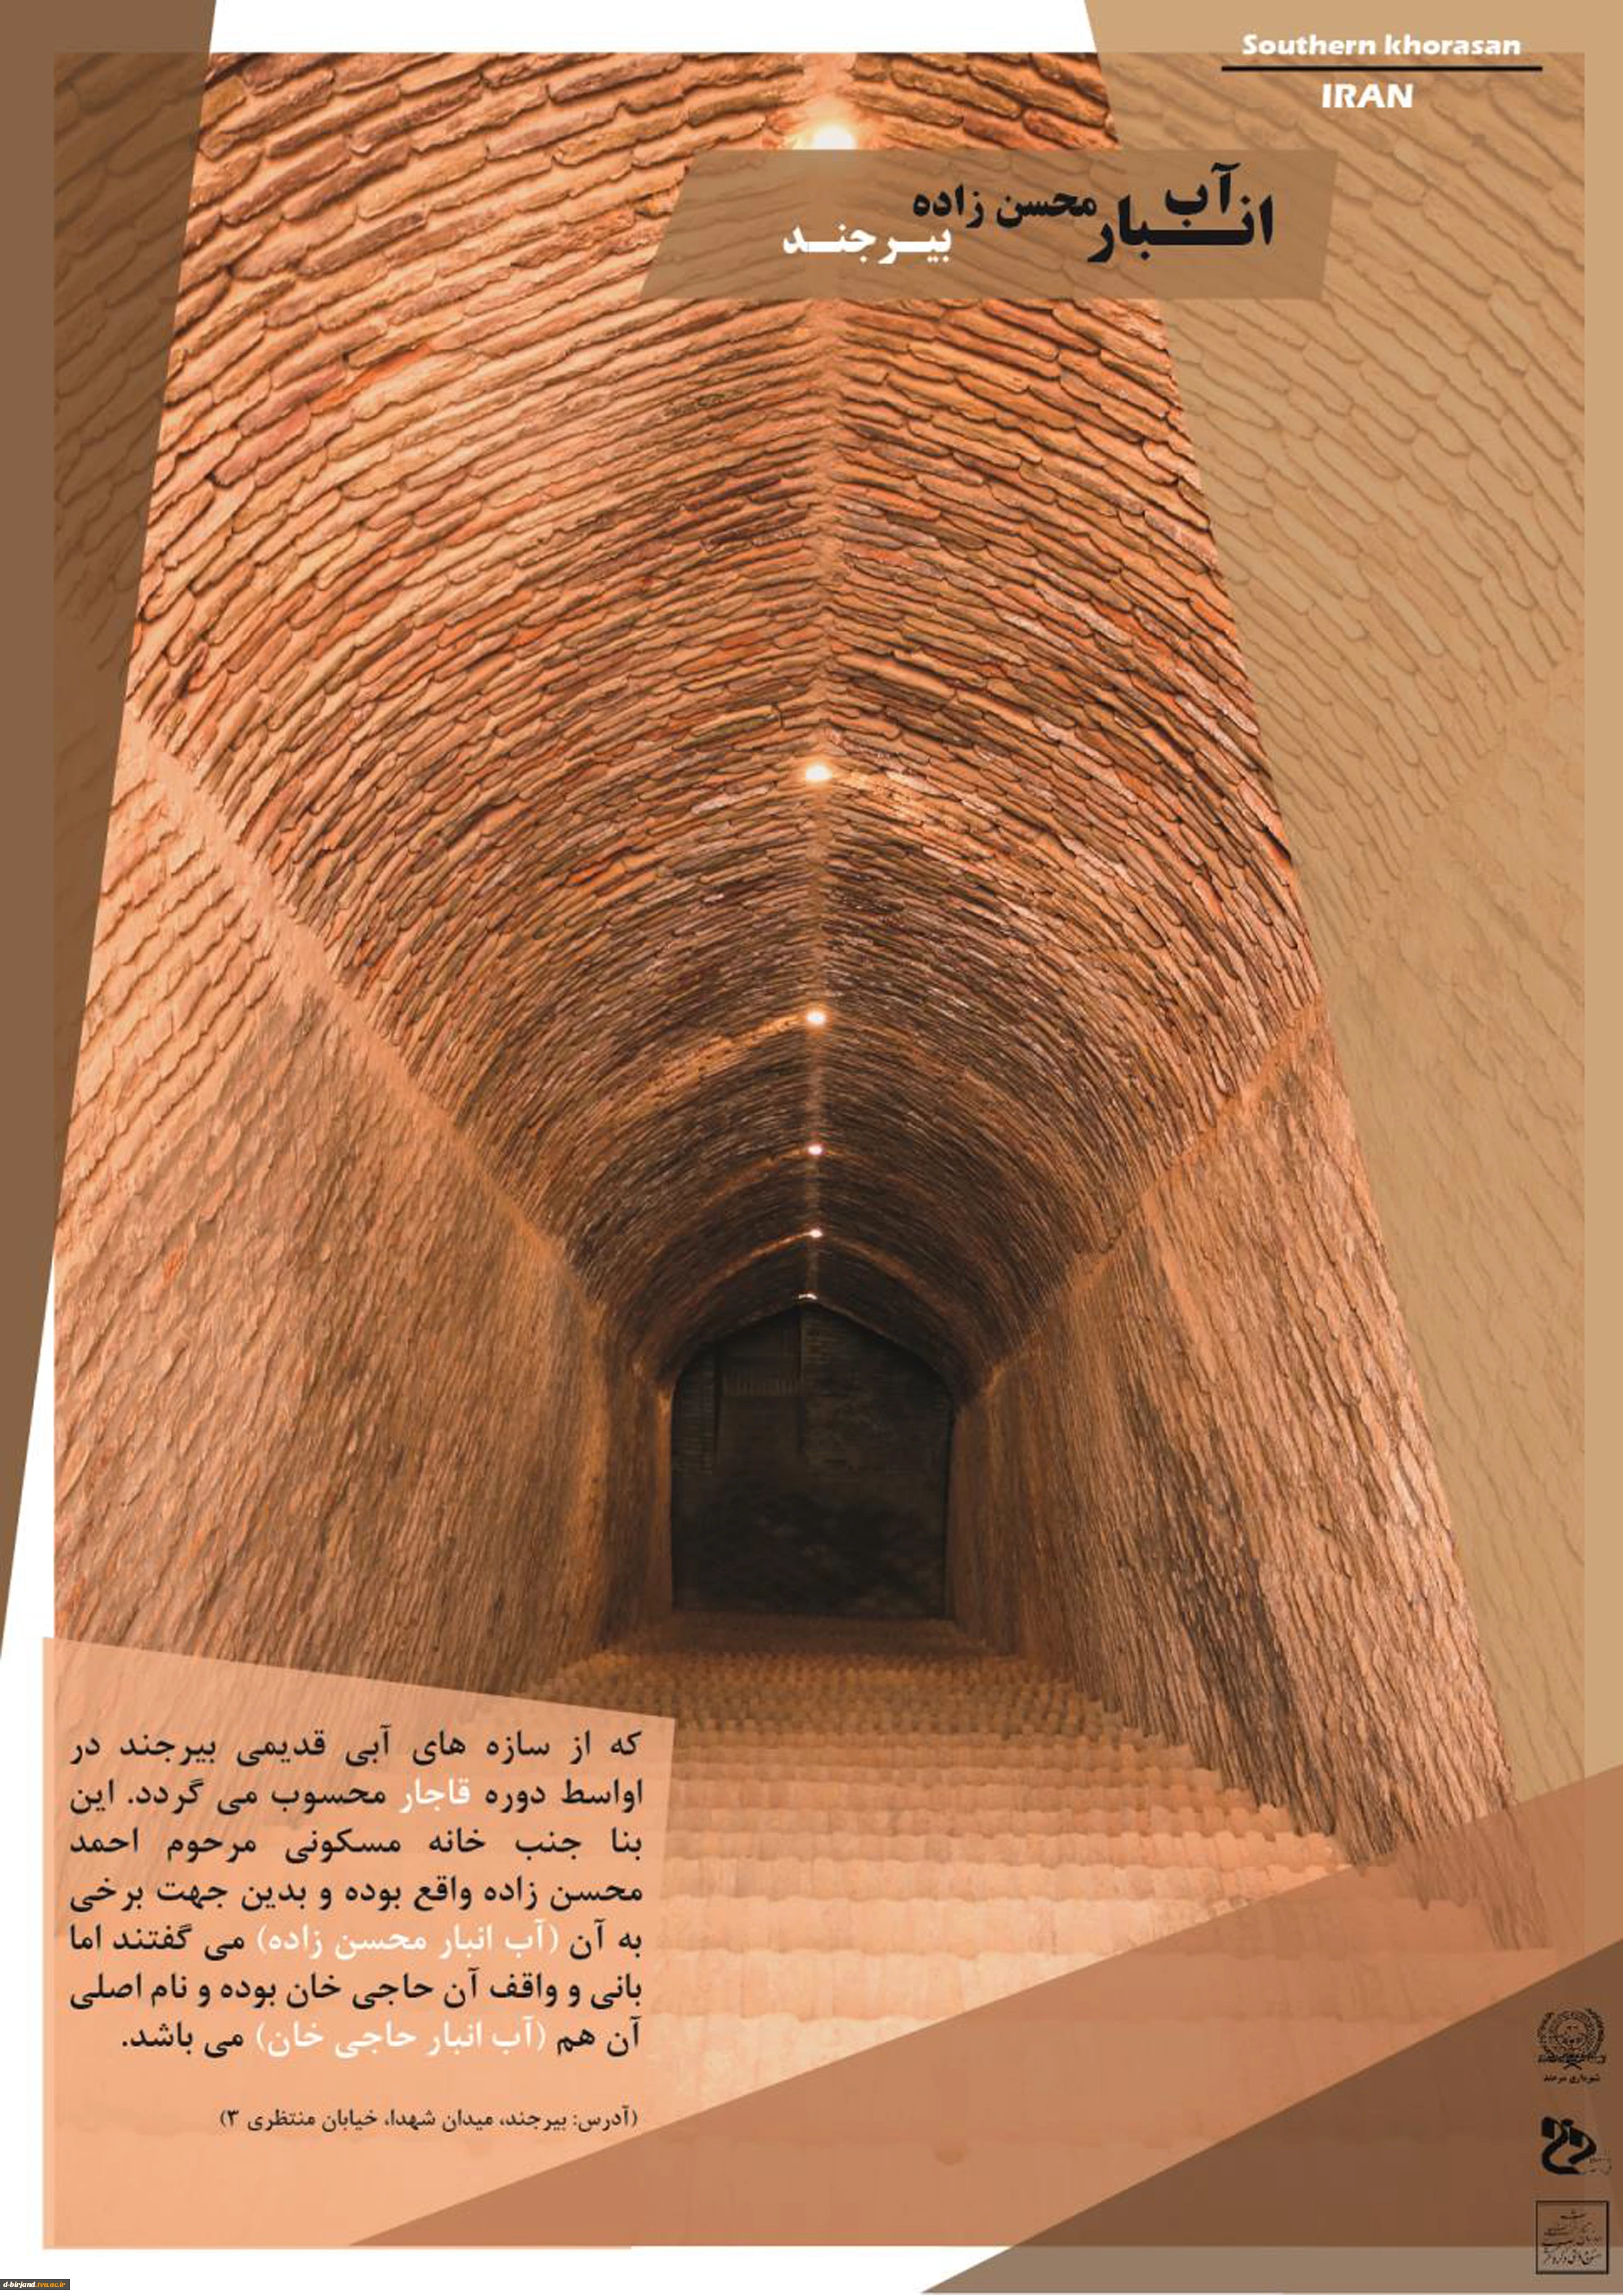 Southern khorasan
IRAN
آب
انبار محسن زاده
بیرجند
که از سازه های آبی قدیمی بیرجند در
اواسط دوره قاجار محسوب می گردد. این
بنا جنب خانه مسکونی مرحوم احمد
محسن زاده واقع بوده و بدین جهت برخی
به آن (آب انبار محسن زاده) می گفتند اما
بانی و واقف آن حاجی خان بوده و نام اصلی
آن هم (آب انبار حاجی خان) می باشد.
(آدرس: بیرجند، میدان شهدا، خیابان منتظری ۳)
شهرداری بیرجند
d-birjand.tvu.ac.ir